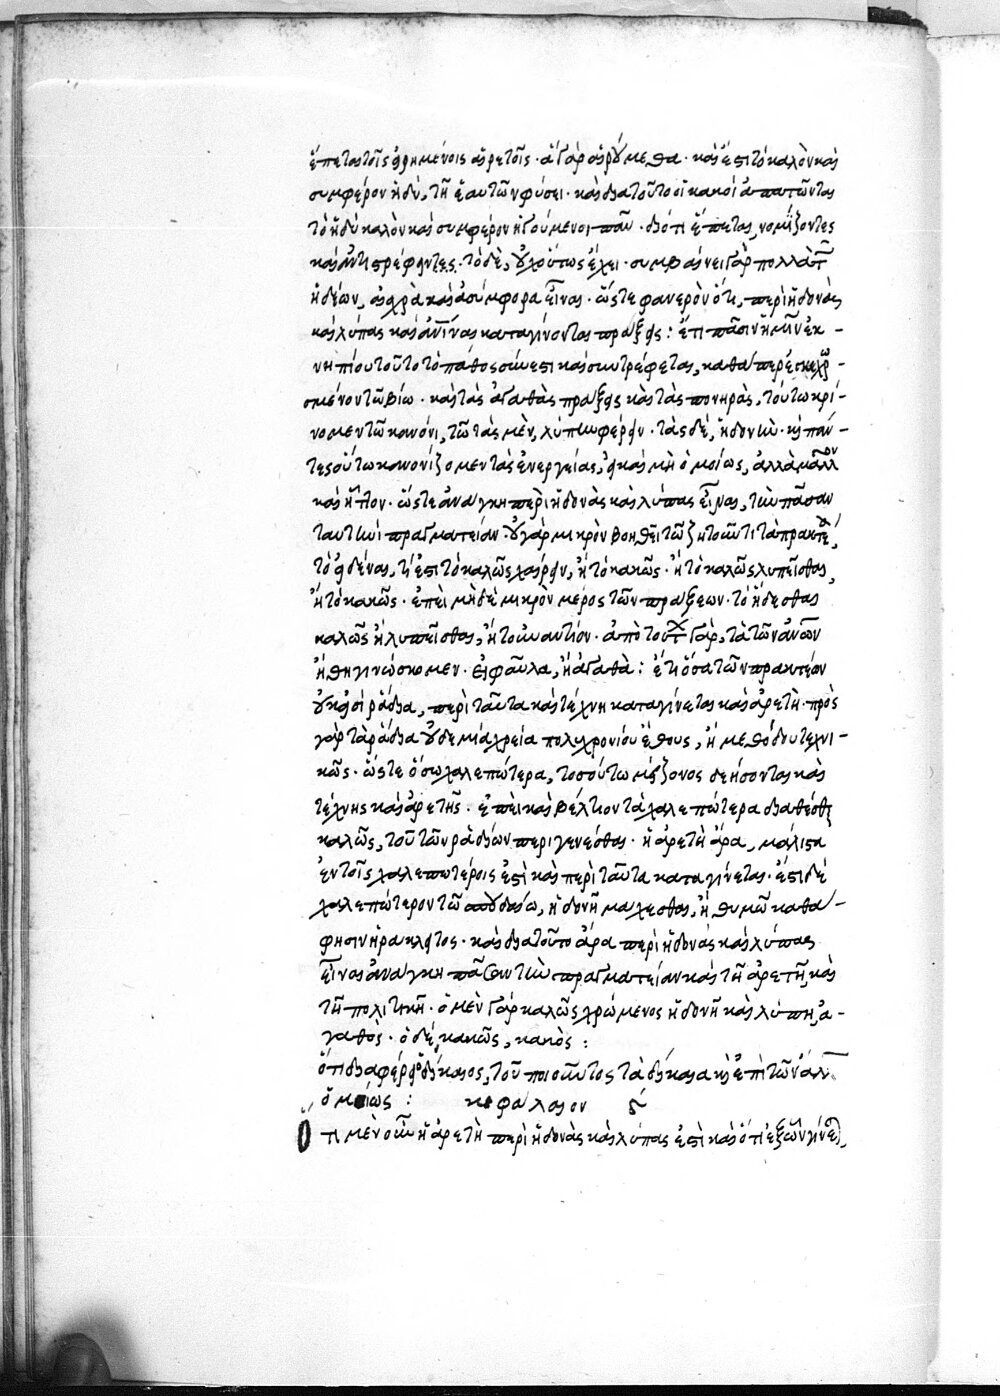 ἕπεται τοῖς εἰρημένοις αἱρετοῖς· ἃ γὰρ αἱρούμεθα· καὶ ἔστι τὸ καλὸν καὶ
συμφέρον ἡδὺ, τῇ ἑαυτῶν φύσει· καὶ διατοῦτο οἱ κακοὶ ἀπατῶνται
τὸ ἡδὺ καλὸν καὶ συμφέρον ἡγούμενοι πᾶν· διότι ἕπεται, νομίζοντες
καὶ ἀντιστρέφειν τὸ δὲ, οὐχ οὕτως ἔχει· συμβαίνει γὰρ πολλὰ τῶν
ἡδέων, αἰσχρὰ καὶ ἀσύμφορα εἶναι· ὥστε φανερὸν ὅτι, περὶ ἡδονὰς
καὶ λύπας καὶ ἀνίας καταγίνονται πράξεις: ἔτι πᾶσιν ἡμῖν ἐκ -
νηπίου τοῦτο τὸ πάθος σύνεστι καὶ συντρέφεται, καθάπερ ἐγκεχρω -
σμένον τῶ βίω· καὶ τὰς ἀγαθὰς πράξεις καὶ τὰς πονηρὰς, τούτω κρί -
νομεν τῶ κανόνι, τῶ τὰς μὲν, λύπην φέρειν· τὰς δὲ, ἡδονὴν· καὶ πάν -
τες οὕτω κανονίζομεν τὰς ἐνεργείας, εἰ καὶ μὴ ὁμοίως, ἀλλὰ μᾶλλον
καὶ ἧττον· ὥστε ἀνάγκη περὶ ἡδονὰς καὶ λύπας εἶναι, τὴν πᾶσαν
ταυτηνὶ πραγματείαν· οὐ γὰρ μικρὸν βοηθεῖ τῶ ζητοῦντι τὰ πρακτέα,
τὸ εἰδέναι, τί ἐστι τὸ καλῶς χαίρειν, ἢ τὸ κακῶς· ἢ τὸ καλῶς λυπεῖσθαι,
ἢ τὸ κακῶς· ἐπεὶ μὴ δὲ μικρὸν μέρος τῶν πράξεων· τὸ ἥδεσθαι
καλῶς ἢ λυπεῖσθαι, ἢ τοὐναντίον· ἀπὸ τούτων γὰρ, τὰ τῶν ἀνθρώπων
ἤθη γινώσκομεν· εἰ φαῦλα, ἢ ἀγαθὰ: ἔτι ὅσα τῶν πρακτέων
οὐκ εἰσὶ ῥάδια, περὶ ταῦτα καὶ τέχνη καταγίνεται καὶ ἀρετὴ· πρὸς
γὰρ τὰ ῥάδια οὐδεμία χρεία πολυχρονίου ἔθους, ἢ μεθόδου τεχνι -
κῶς· ὥστε ὅσω χαλεπώτερα, τοσούτω μείζονος δεήσονται καὶ
τέχνης καὶ ἀρετῆς· ἐπεὶ καὶ βέλτιον τὰ χαλεπώτερα διαθέσθαι
καλῶς, τοῦ τῶν ῥαδίων περιγενέσθαι· ἡ ἀρετὴ ἄρα, μάλιστα
ἐν τοῖς χαλεπωτέροις ἐστὶ καὶ περὶ ταῦτα καταγίνεται· ἔστι δὲ
χαλεπώτερον τῶ σπουδαίω, ἡδονῇ μάχεσθαι, ἢ θυμῶ καθά -
φησιν ἡράκλειτος· καὶ διατοῦτο ἄρα περὶ ἡδονὰς καὶ λύπας
εἶναι ἀνάγκη πᾶσαν τὴν πραγματείαν καὶ τῇ ἀρετῇ, καὶ
τῇ πολιτικῇ· ὁ μὲν γὰρ καλῶς χρώμενος ἡδονῇ καὶ λύπῃ, ἀ-
γαθὸς· ὁ δὲ, κακῶς, κακὸς:
ὅτι διαφέρει ὁ δίκαιος, τοῦ ποιοῦντος τὰ δίκαια καὶ ἐπὶ τῶν ἄλλων
ὁμοίως: κεφάλαιον δ
Ὅτι μὲν οὖν ἡ ἀρετὴ περὶ ἡδονὰς καὶ λύπας ἐστὶ καὶ ὅτι ἐξ ὧν γίνεται,